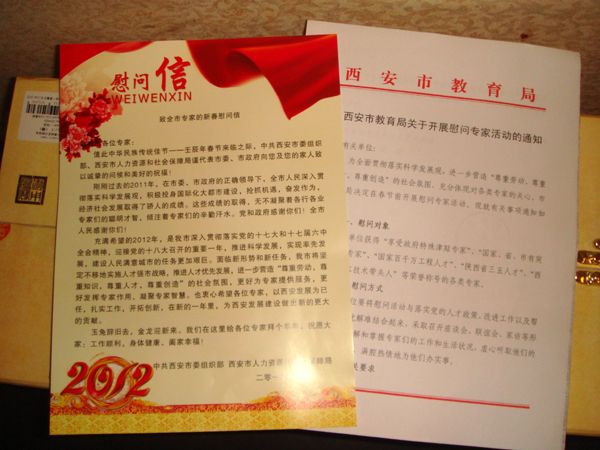 慰问信
WEIWENXIN
致全市专家的新春慰问信
各位专家：
值此中华民族传统佳节——壬辰年春节来临之际，中共西安市委组织
部、西安市人力资源和社会保障局谨代表市委、市政府向您及您的家人致
以诚挚的问候和美好的祝福！
刚刚过去的2011年，在市委、市政府的正确领导下，全市人民深入贯
彻落实科学发展观，积极投身国际化大都市建设，抢抓机遇，奋发作为，
经济社会发展取得了骄人的成绩。这些成绩的取得，无不凝聚着各行各业
专家们的聪明才智，倾注着专家们的辛勤汗水。党和政府感谢你们！全市
人民感谢你们！
充满希望的2012年，是我市深入贯彻落实党的十七大和十七届六中
全会精神，迎接党的十八大召开的重要一年，推进科学发展，实现率先发
展，建设人民满意城市的任务更加艰巨。面临新形势和新任务，我市将坚
定不移地实施人才强市战略，推进人才优先发展，进一步营造“尊重劳动，尊
重知识，尊重人才，尊重创造”的社会氛围，更好为专家提供服务，更
好发挥专家作用、凝聚专家智慧。也衷心希望各位专家，以西安发展为己
任，扎实工作，开拓创新，在新的一年里，为西安发展建设做出新的更大
的贡献。
玉兔辞旧去，金龙迎新来。我们在这里给各位专家拜个早年，祝愿大
家：工作顺利，身体健康、阖家幸福！
中共西安市委组织部 西安市人力资源
障局
二零一
2012
西安市教育局
西安市教育局关于开展慰问专家活动的通知
有关单位：
为全面贯彻落实科学发展观，进一步营造“尊重劳动、尊重
、尊重创造”的社会氛围，充分体现对各类专家的关心，市
局决定在春节前开展慰问专家活动。现就有关事项通知如
、慰问对象
单位获得“享受政府特殊津贴专家”、“国家、省、市有突
专家”、“国家百千万工程人才”、“陕西省三五人才”、“西
技术带头人”等荣誉称号的各类专家。
慰问方式
位要将慰问活动与落实党的人才政策、改进工作以及帮
解难结合起来，采取召开座谈会、联谊会、家访等形
解和掌握专家们的工作和生活状况，虚心听取他们的
满腔热情地为他们办实事。
关要求